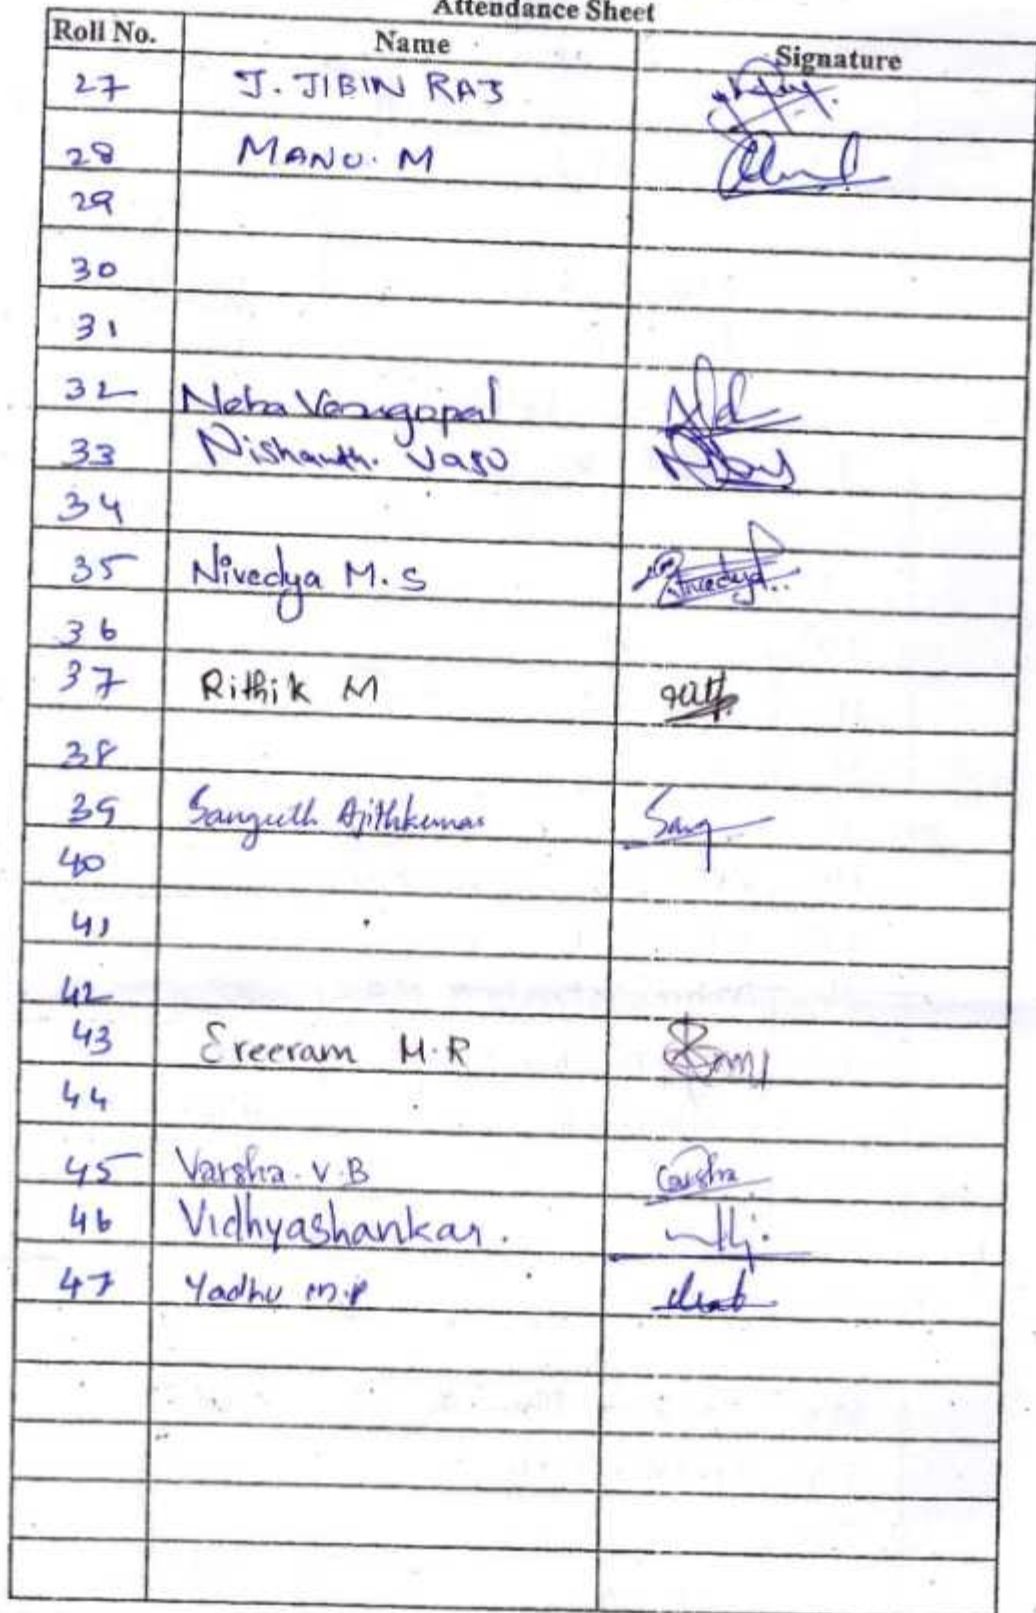 Attendance Sheet
Roll No. Name Signature
27 J. JIBIN RAJ
28 MANU. M
29
30
31
32 Neha Venugopal
33 Nishanth. Vasu
34
35 Nivedya M.S Nivedya
36
37 Rithik M
38
39 Ajithkumar Sang
40
41
42
43 Sreeram M.R
44
45 Varsha. V.B Varsha
46 Vidhyashankar.
47 Yadhu M.P